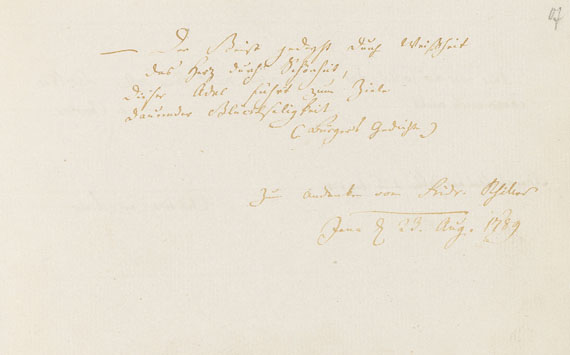 — Der Geist gedeyht durch Weißheit
das Herz durch Schönheit,
dieser Adel führt zum Ziele
daurender Glückseligkeit
(Bürgers Gedichte)
Zum Andenken von Fridr. Schiller
Jena d 23. Aug. 1789